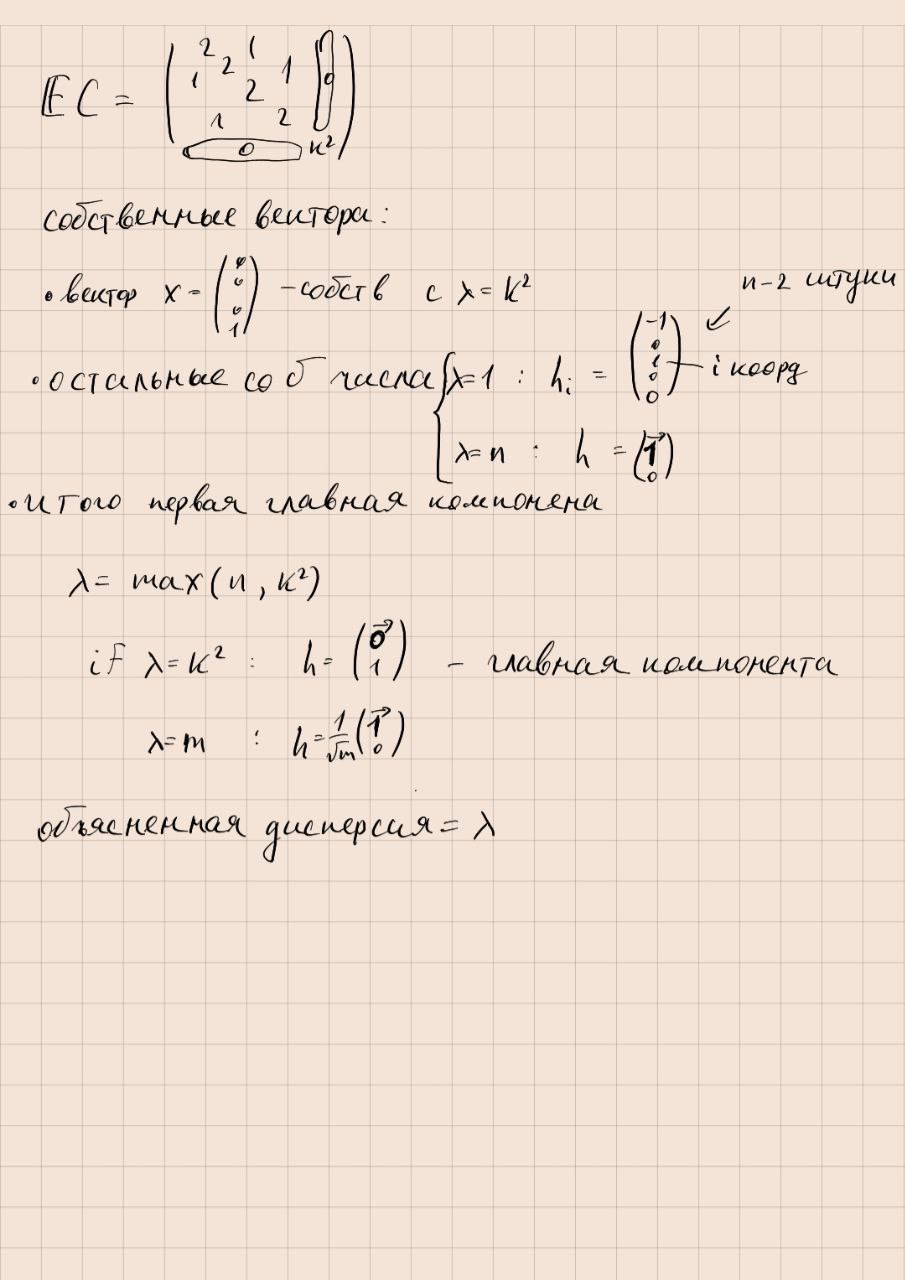 EC = ( 2 1 1 2 1 2 1 2 0 0 k² )
собственные вектора:
• вектор x - (0 0 0 1) - собств с λ = k²
n-2 штуки
• остальные соб числа { λ=1 : hᵢ = (-1 0 1 0 0) - i коорд
λ=n : h = (1⃗ 0)
• итого первая главная компонена
λ = max(n, k²)
if λ = k² : h = (0⃗ 1) - главная компонента
λ=m : h = 1/√m (1⃗ 0)
объясненная дисперсия = λ